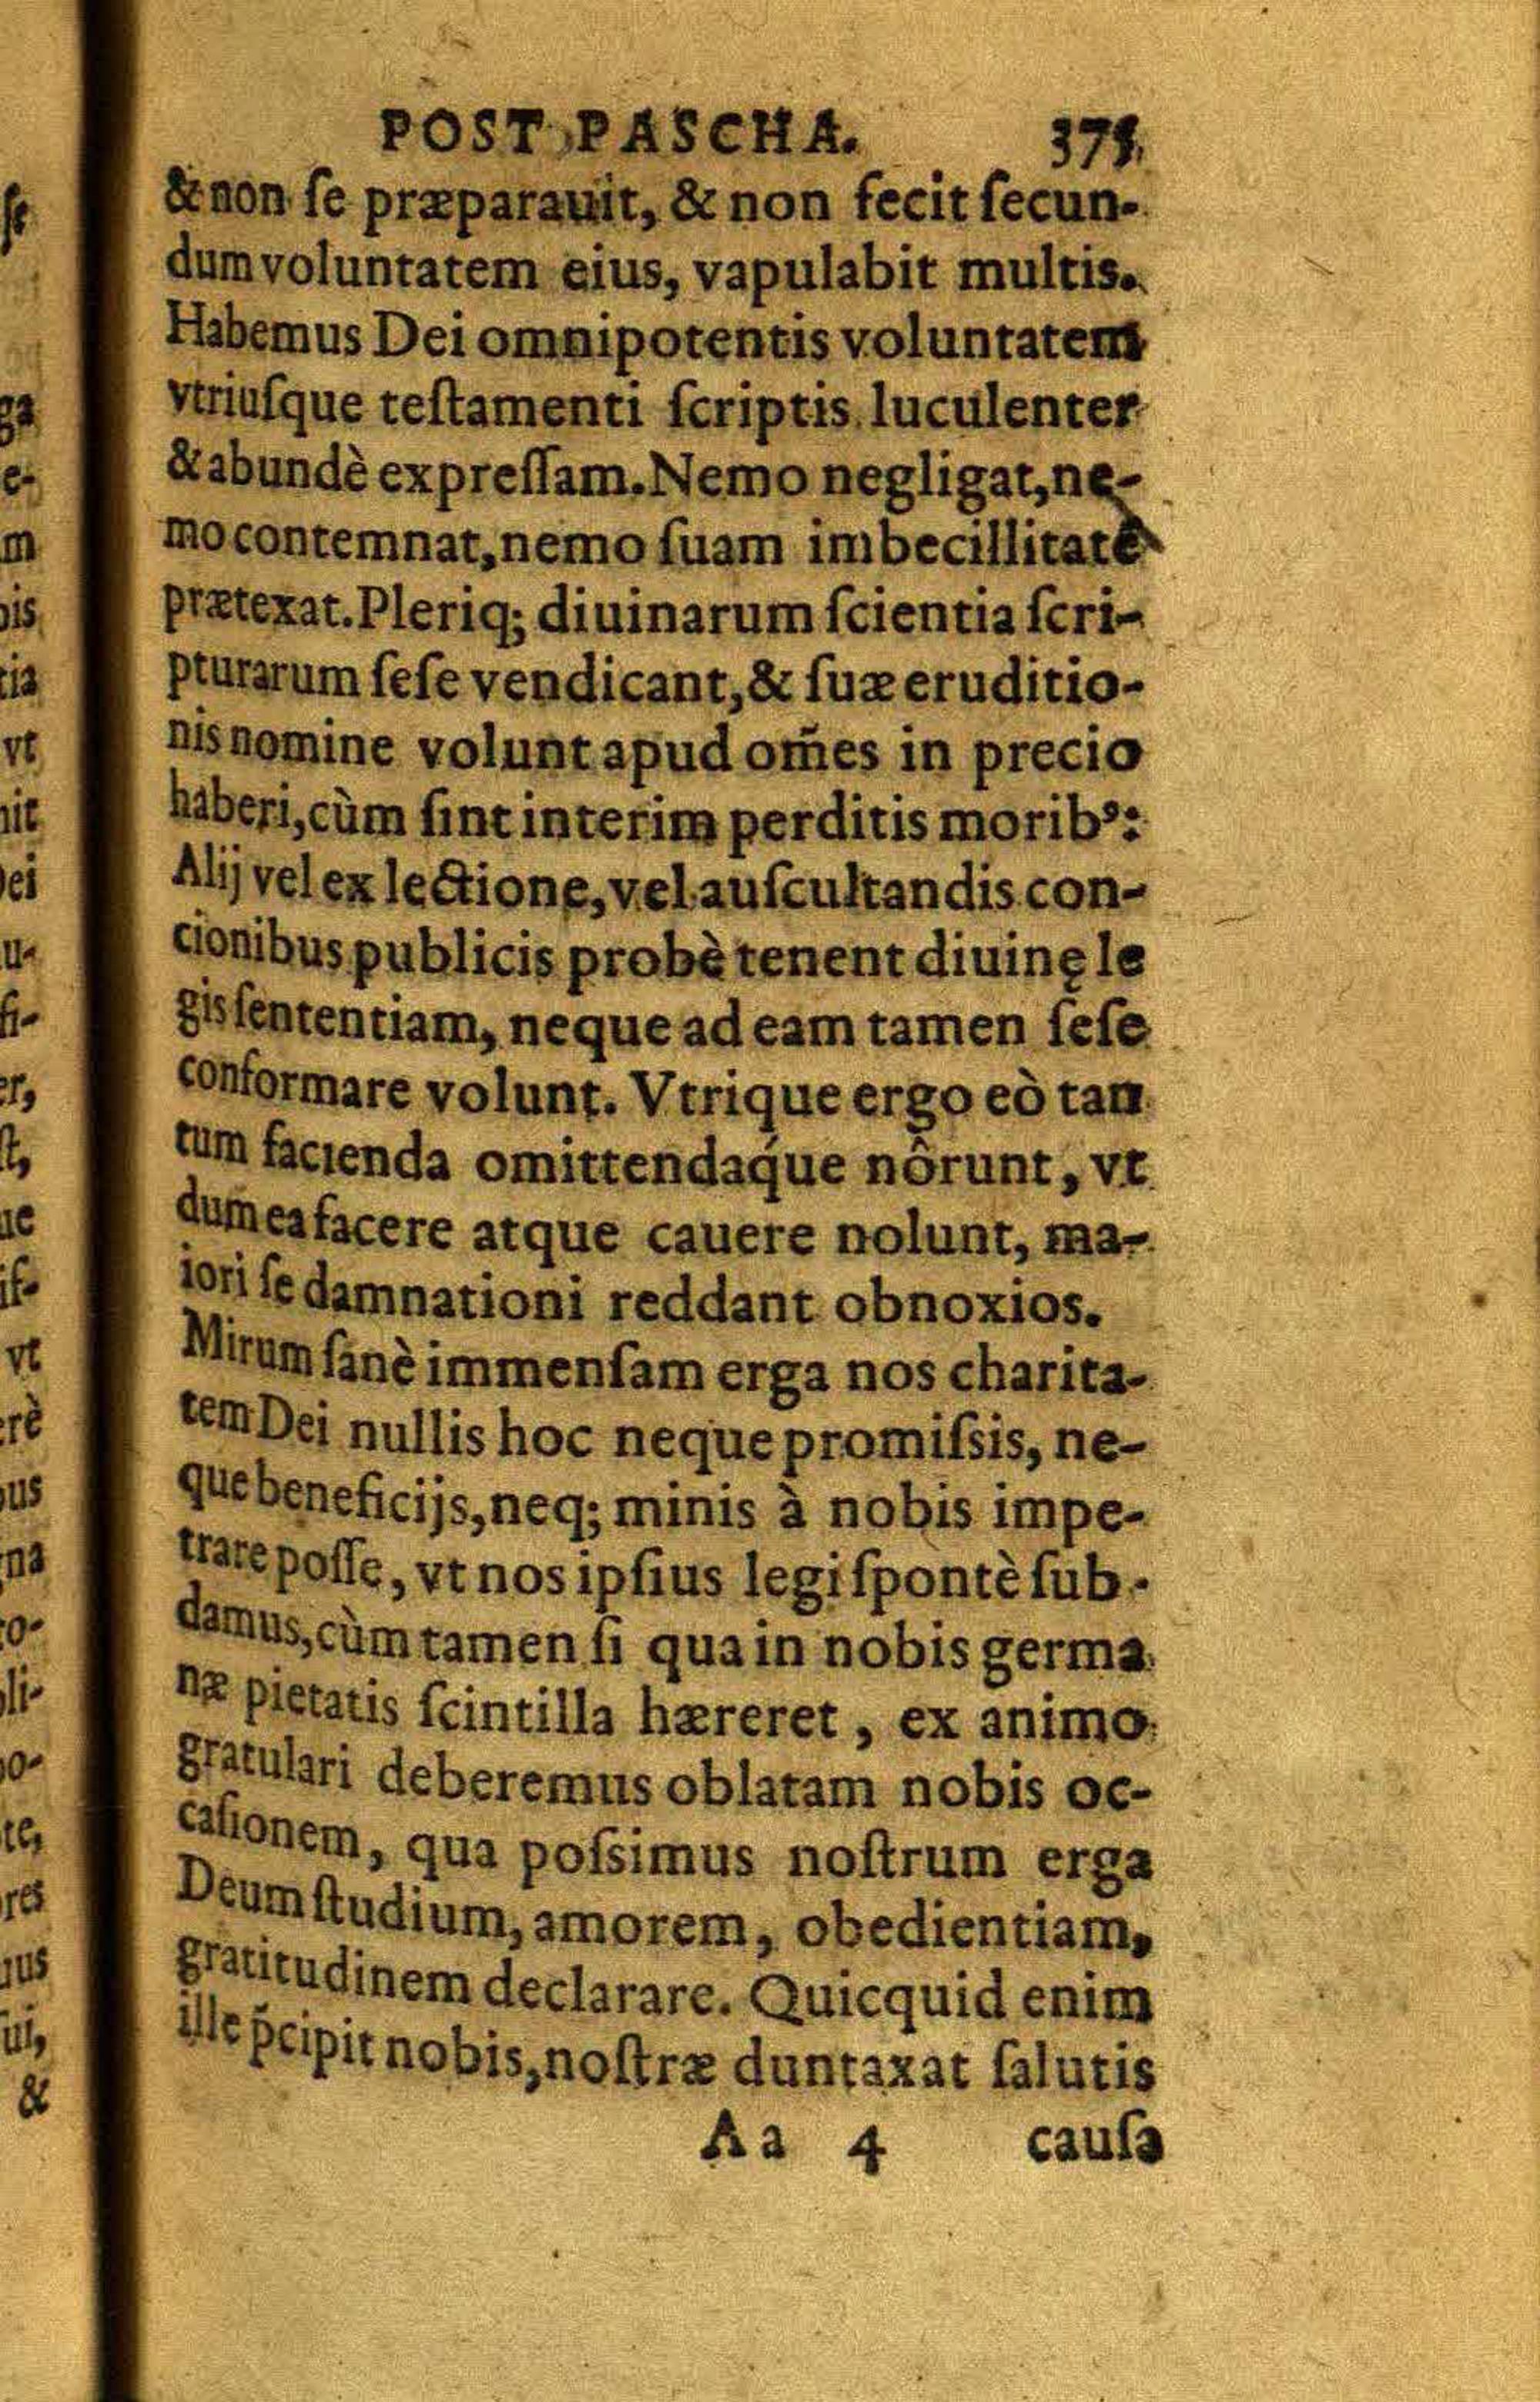 POST PASCHA. 375.
& non ſe præparauit, & non fecit ſecun-
dum voluntatem eius, vapulabit multis.
Habemus Dei omnipotentis voluntatem
vtriuſque teſtamenti ſcriptis luculenter
& abundè expreſſam. Nemo negligat, ne-
mo contemnat, nemo ſuam imbecillitatē
prætexat. Pleriq; diuinarum ſcientia ſcri-
pturarum ſeſe vendicant, & ſuæ eruditio-
nis nomine volunt apud om̃es in precio
haberi, cùm ſint interim perditis moribꝰ:
Alij vel ex lectione, vel auſcultandis con-
cionibus publicis probè tenent diuinę le
gis ſententiam, neque ad eam tamen ſeſe
conformare volunt. Vtrique ergo eò tan
tum facienda omittendaq́ue nôrunt, vt
dum ea facere atque cauere nolunt, ma-
iori ſe damnationi reddant obnoxios.
Mirum ſanè immenſam erga nos charita-
tem Dei nullis hoc neque promiſsis, ne-
que beneficijs, neq; minis à nobis impe-
trare poſſe, vt nos ipſius legi ſpontè ſub-
damus, cùm tamen ſi qua in nobis germa
næ pietatis ſcintilla hæreret, ex animo
gratulari deberemus oblatam nobis oc-
caſionem, qua poſsimus noſtrum erga
Deum ſtudium, amorem, obedientiam,
gratitudinem declarare. Quicquid enim
ille p̃cipit nobis, noſtræ duntaxat ſalutis
Aa 4 cauſa